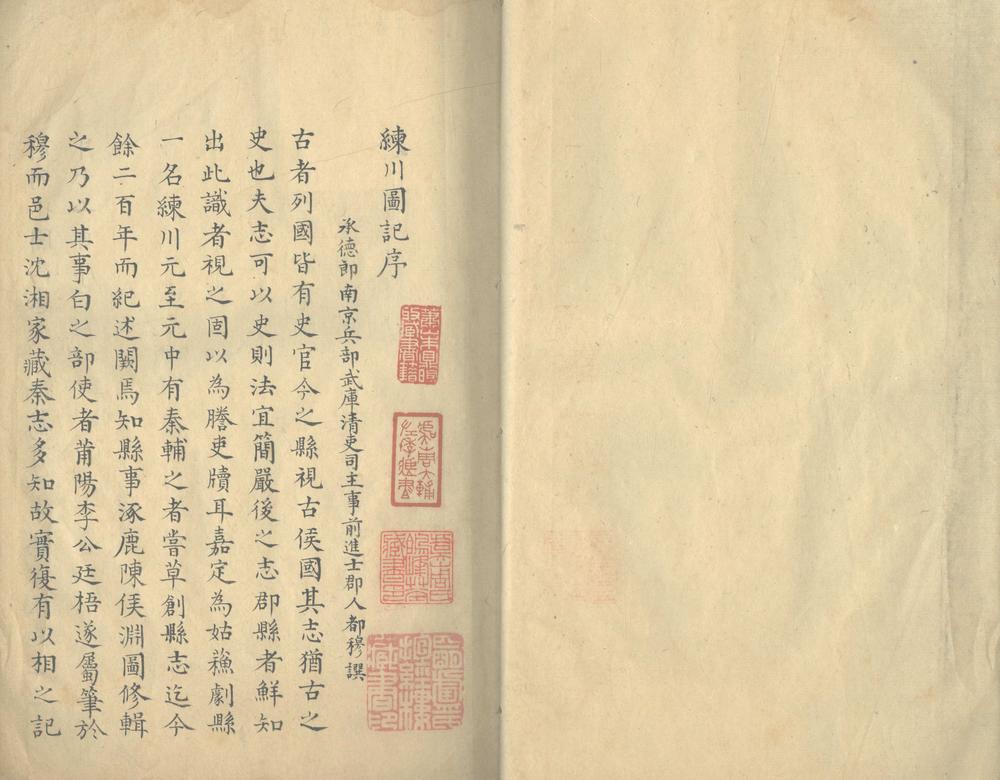 練川圖記序
承德郎南京兵部武庫清吏司主事前進士郡人都穆撰
古者列國皆有史官今之縣視古侯國其志猶古之
史也夫志可以史則法宜簡嚴後之志郡縣者鮮知
出此識者視之固以為謄吏牘耳嘉定為姑蘓劇縣
一名練川元至元中有秦輔之者嘗草創縣志迄今
餘二百年而紀述闕焉知縣事涿鹿陳侯淵圖修輯
之乃以其事白之部使者莆陽李公廷梧遂屬筆於
穆而邑士沈湘家藏秦志多知故實復有以相之記